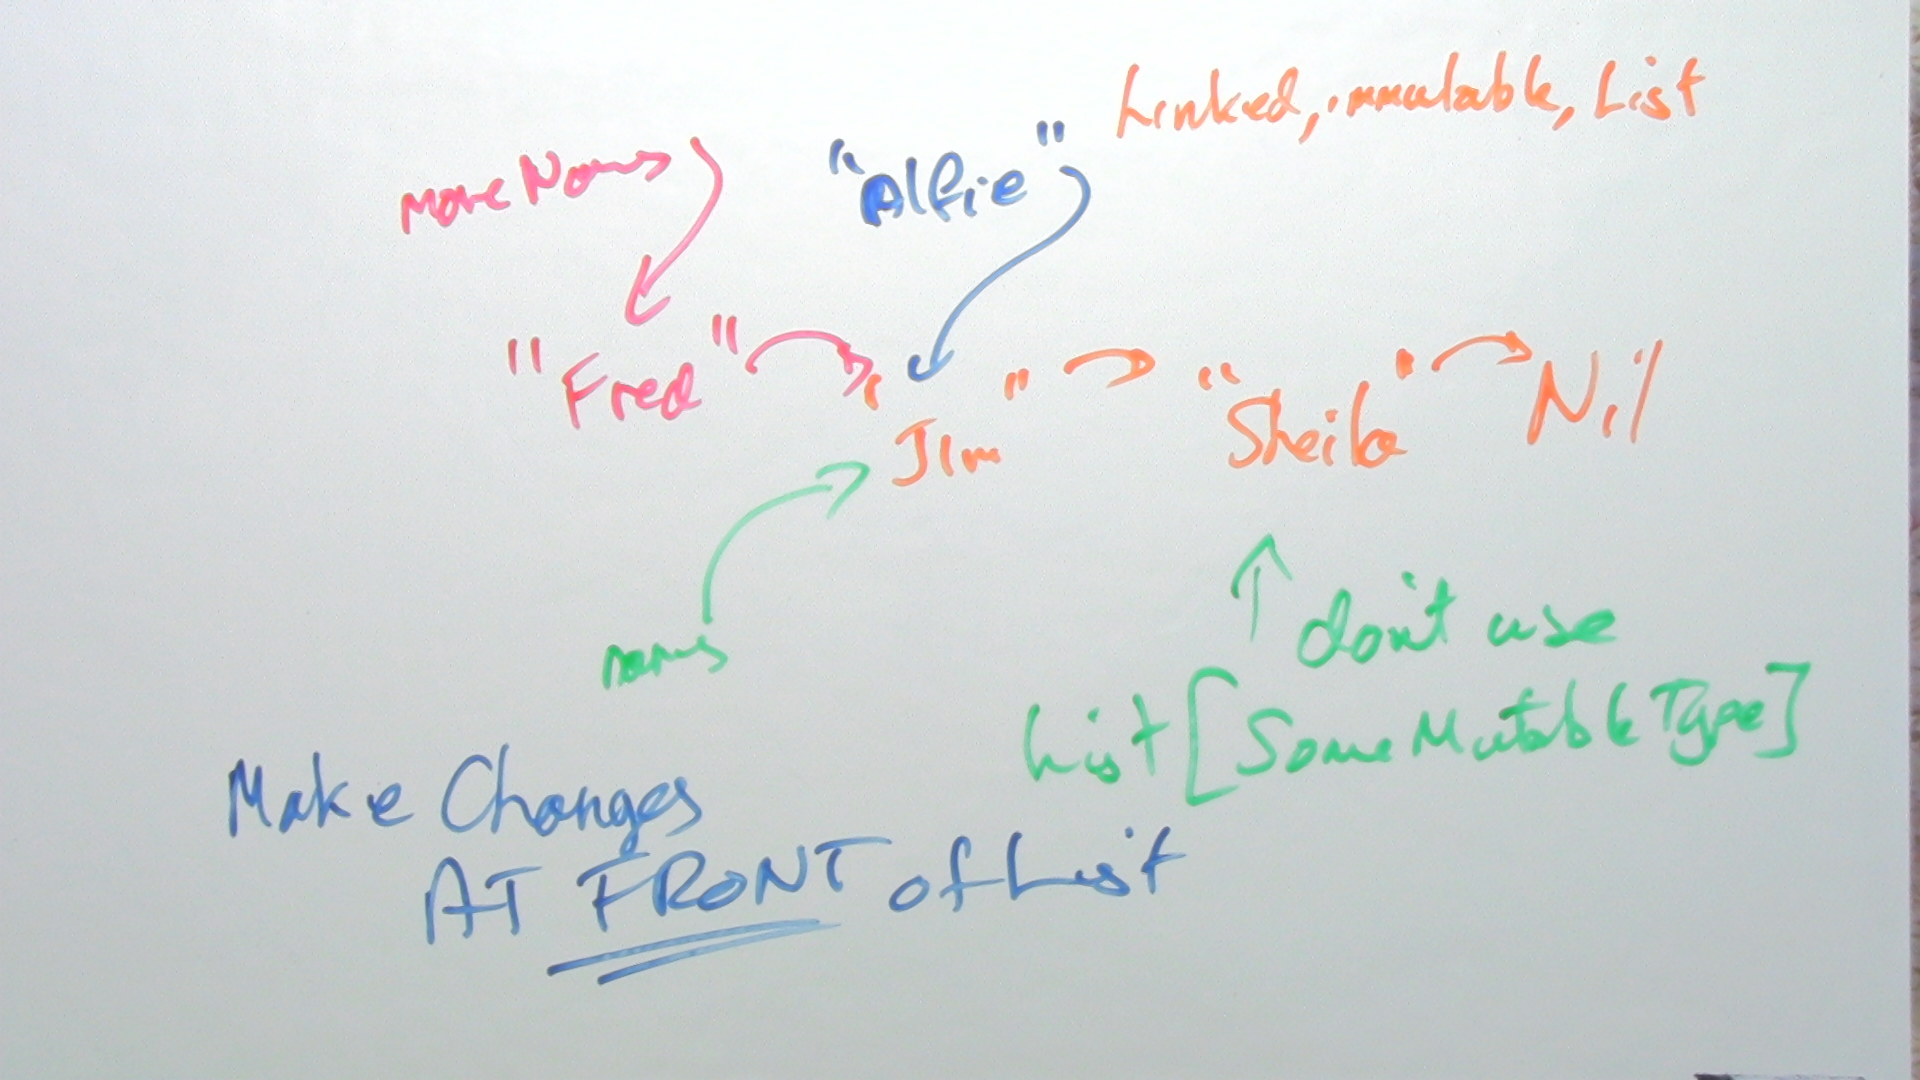 Linked, immutable, List
moreNames
"Alfie"
"Fred" "Jim" "Sheila" Nil
names
don't use
List[SomeMutableType]
Make Changes
AT FRONT of List